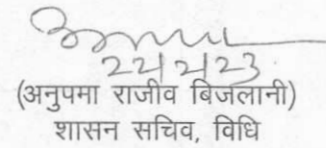 22/2/23
(अनुपमा राजीव बिजलानी)
शासन सचिव, विधि